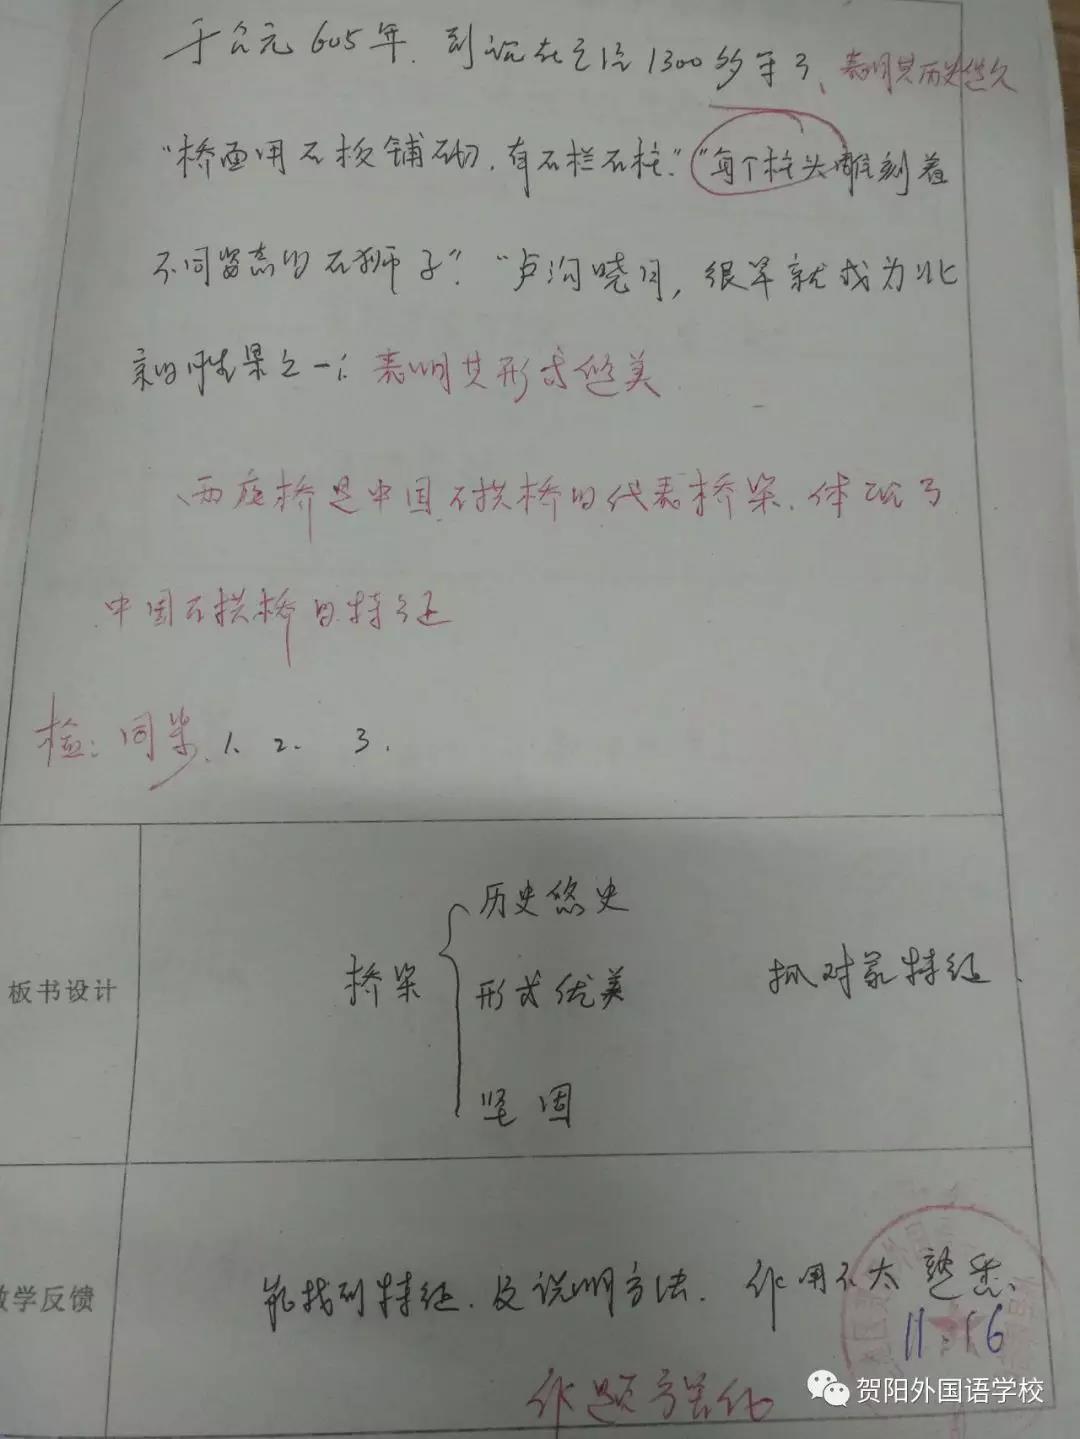 于公元605年，到现在已经1300多年了、表明其历史悠久
“桥面用石板铺砌，有石栏石柱”“每个柱头雕刻着
不同姿态的石狮子”“卢沟晓月，很早就成为北
京的胜景之一；表明其形式优美
、两座桥是中国石拱桥的代表桥梁，体现了
中国石拱桥的特征
检：同步、1、2、3、
板书设计
桥梁
历史悠史
形式优美
坚固
抓对象特征、
学反馈
能找到特征、及说明方法、作用不太熟悉、
11.16
作题
贺阳外国语学校